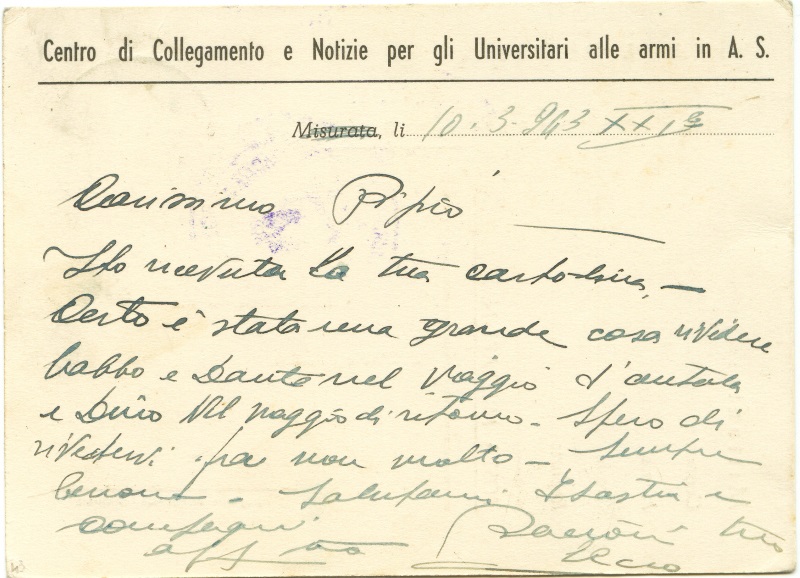 Centro di Collegamento e Notizie per gli Universitari alle armi in A. S.
Misurata, li 10. 3. 943 XXI°
Carissimo Pippo
Ho ricevuta la tua cartolina, —
Certo è stata una grande cosa rivedere
babbo e Dante nel viaggio d'andata
e Dino nel viaggio di ritorno - Spero di
rivedervi fra non molto - Sempre
benone - Salutami e
compagni. Bacioni tuo
aff mo